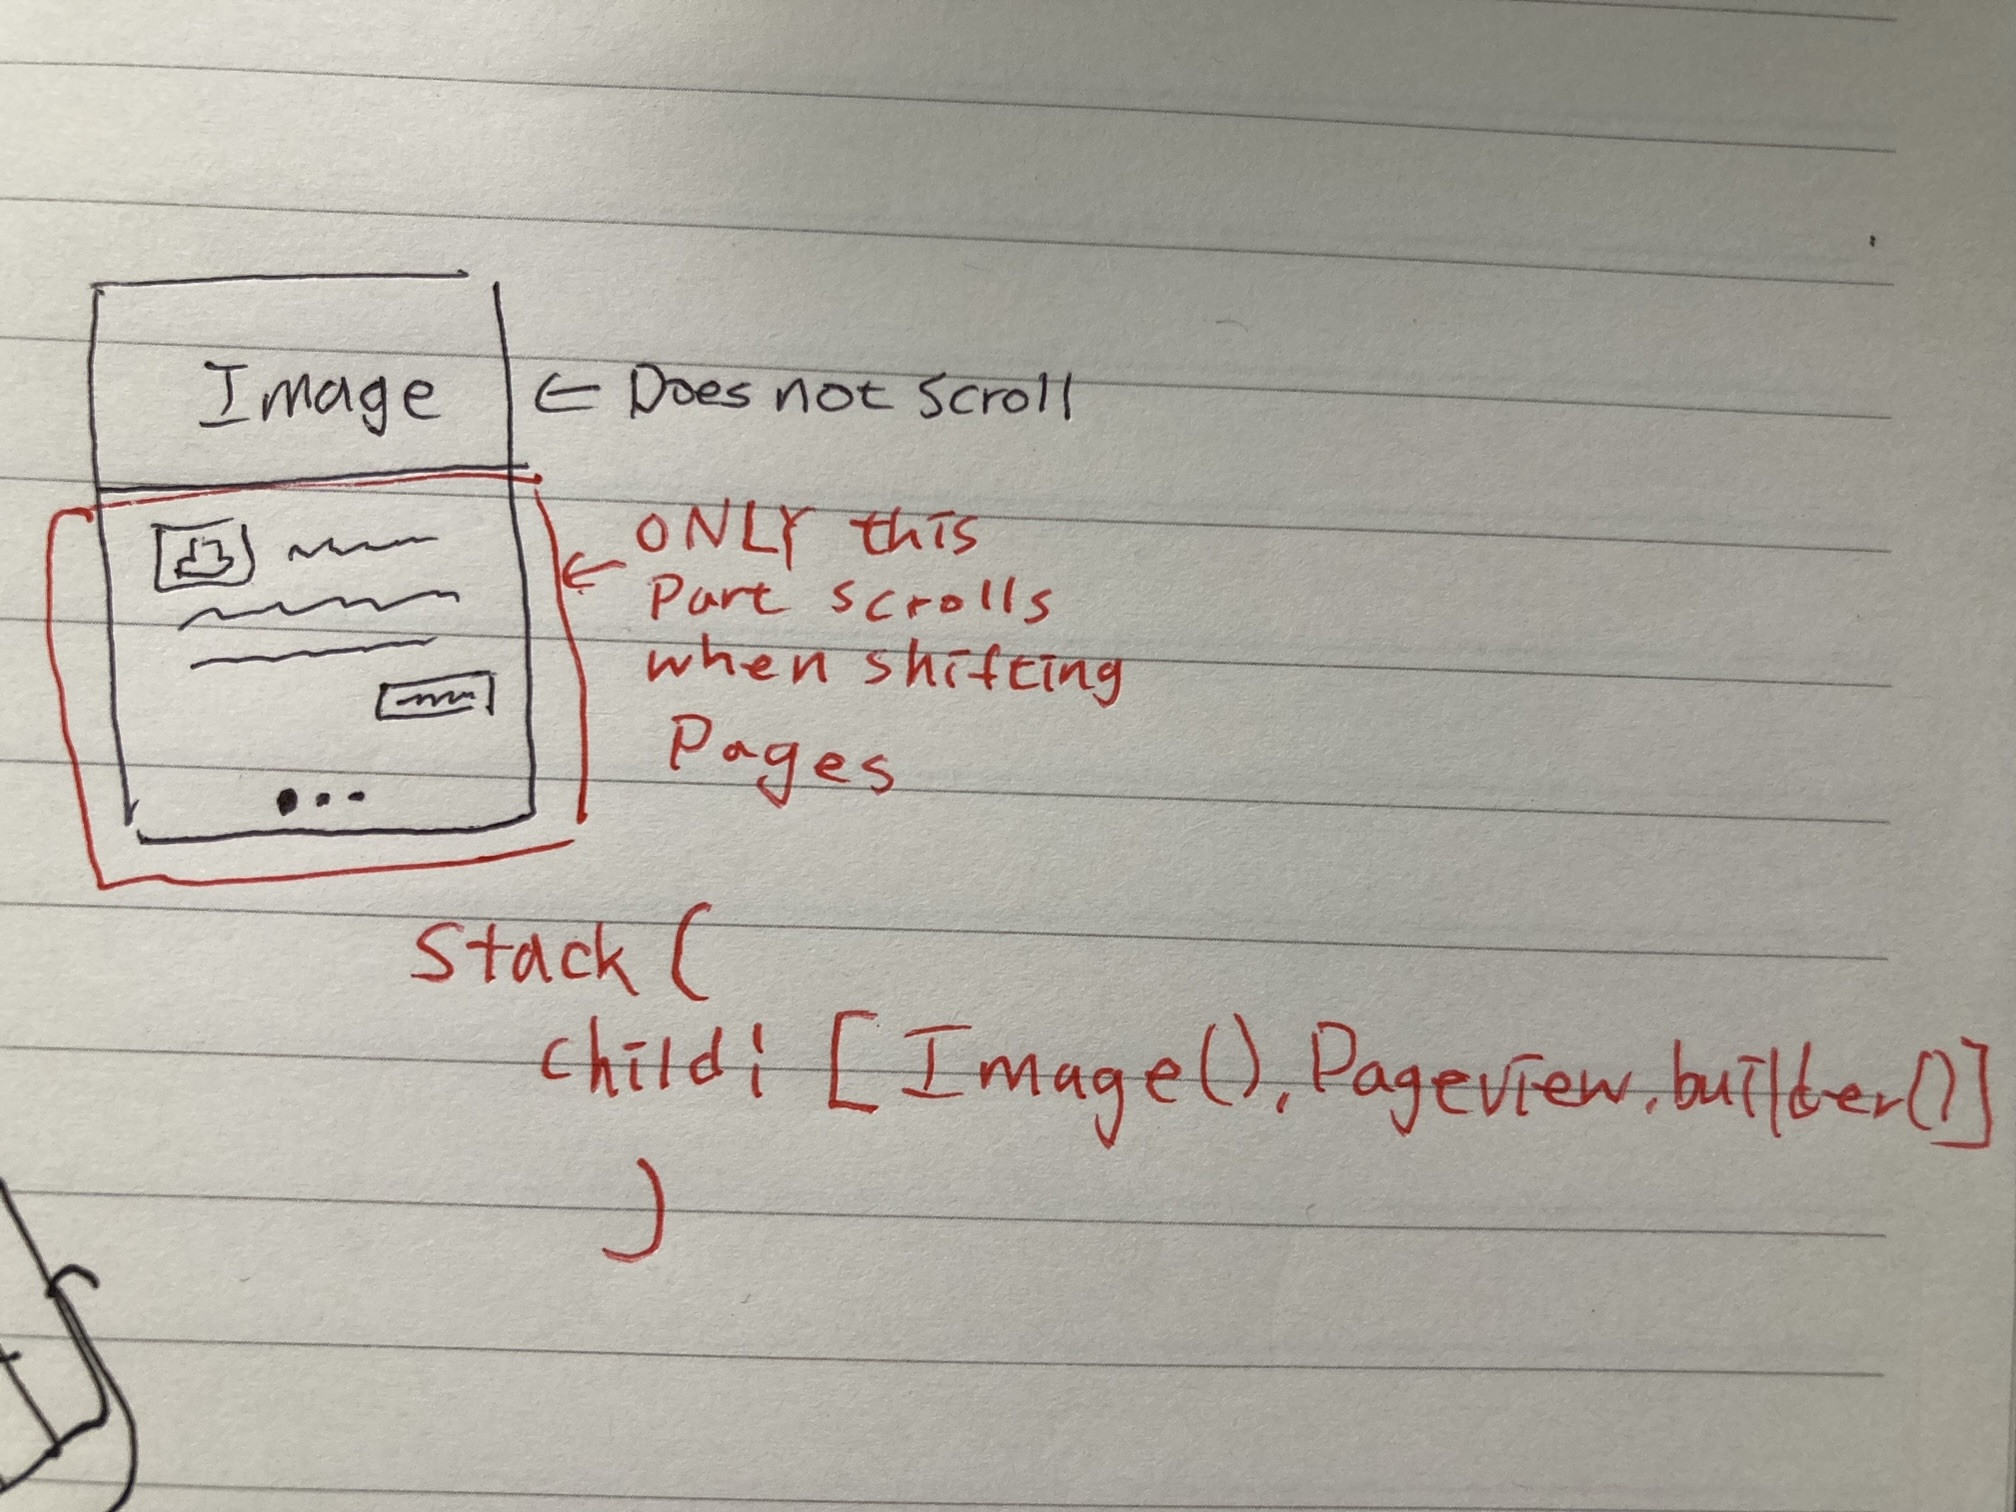 Image
← Does not scroll
← ONLY this
Part scrolls
when shifting
Pages
Stack (
child: [Image(), Pageview.builder()]
)